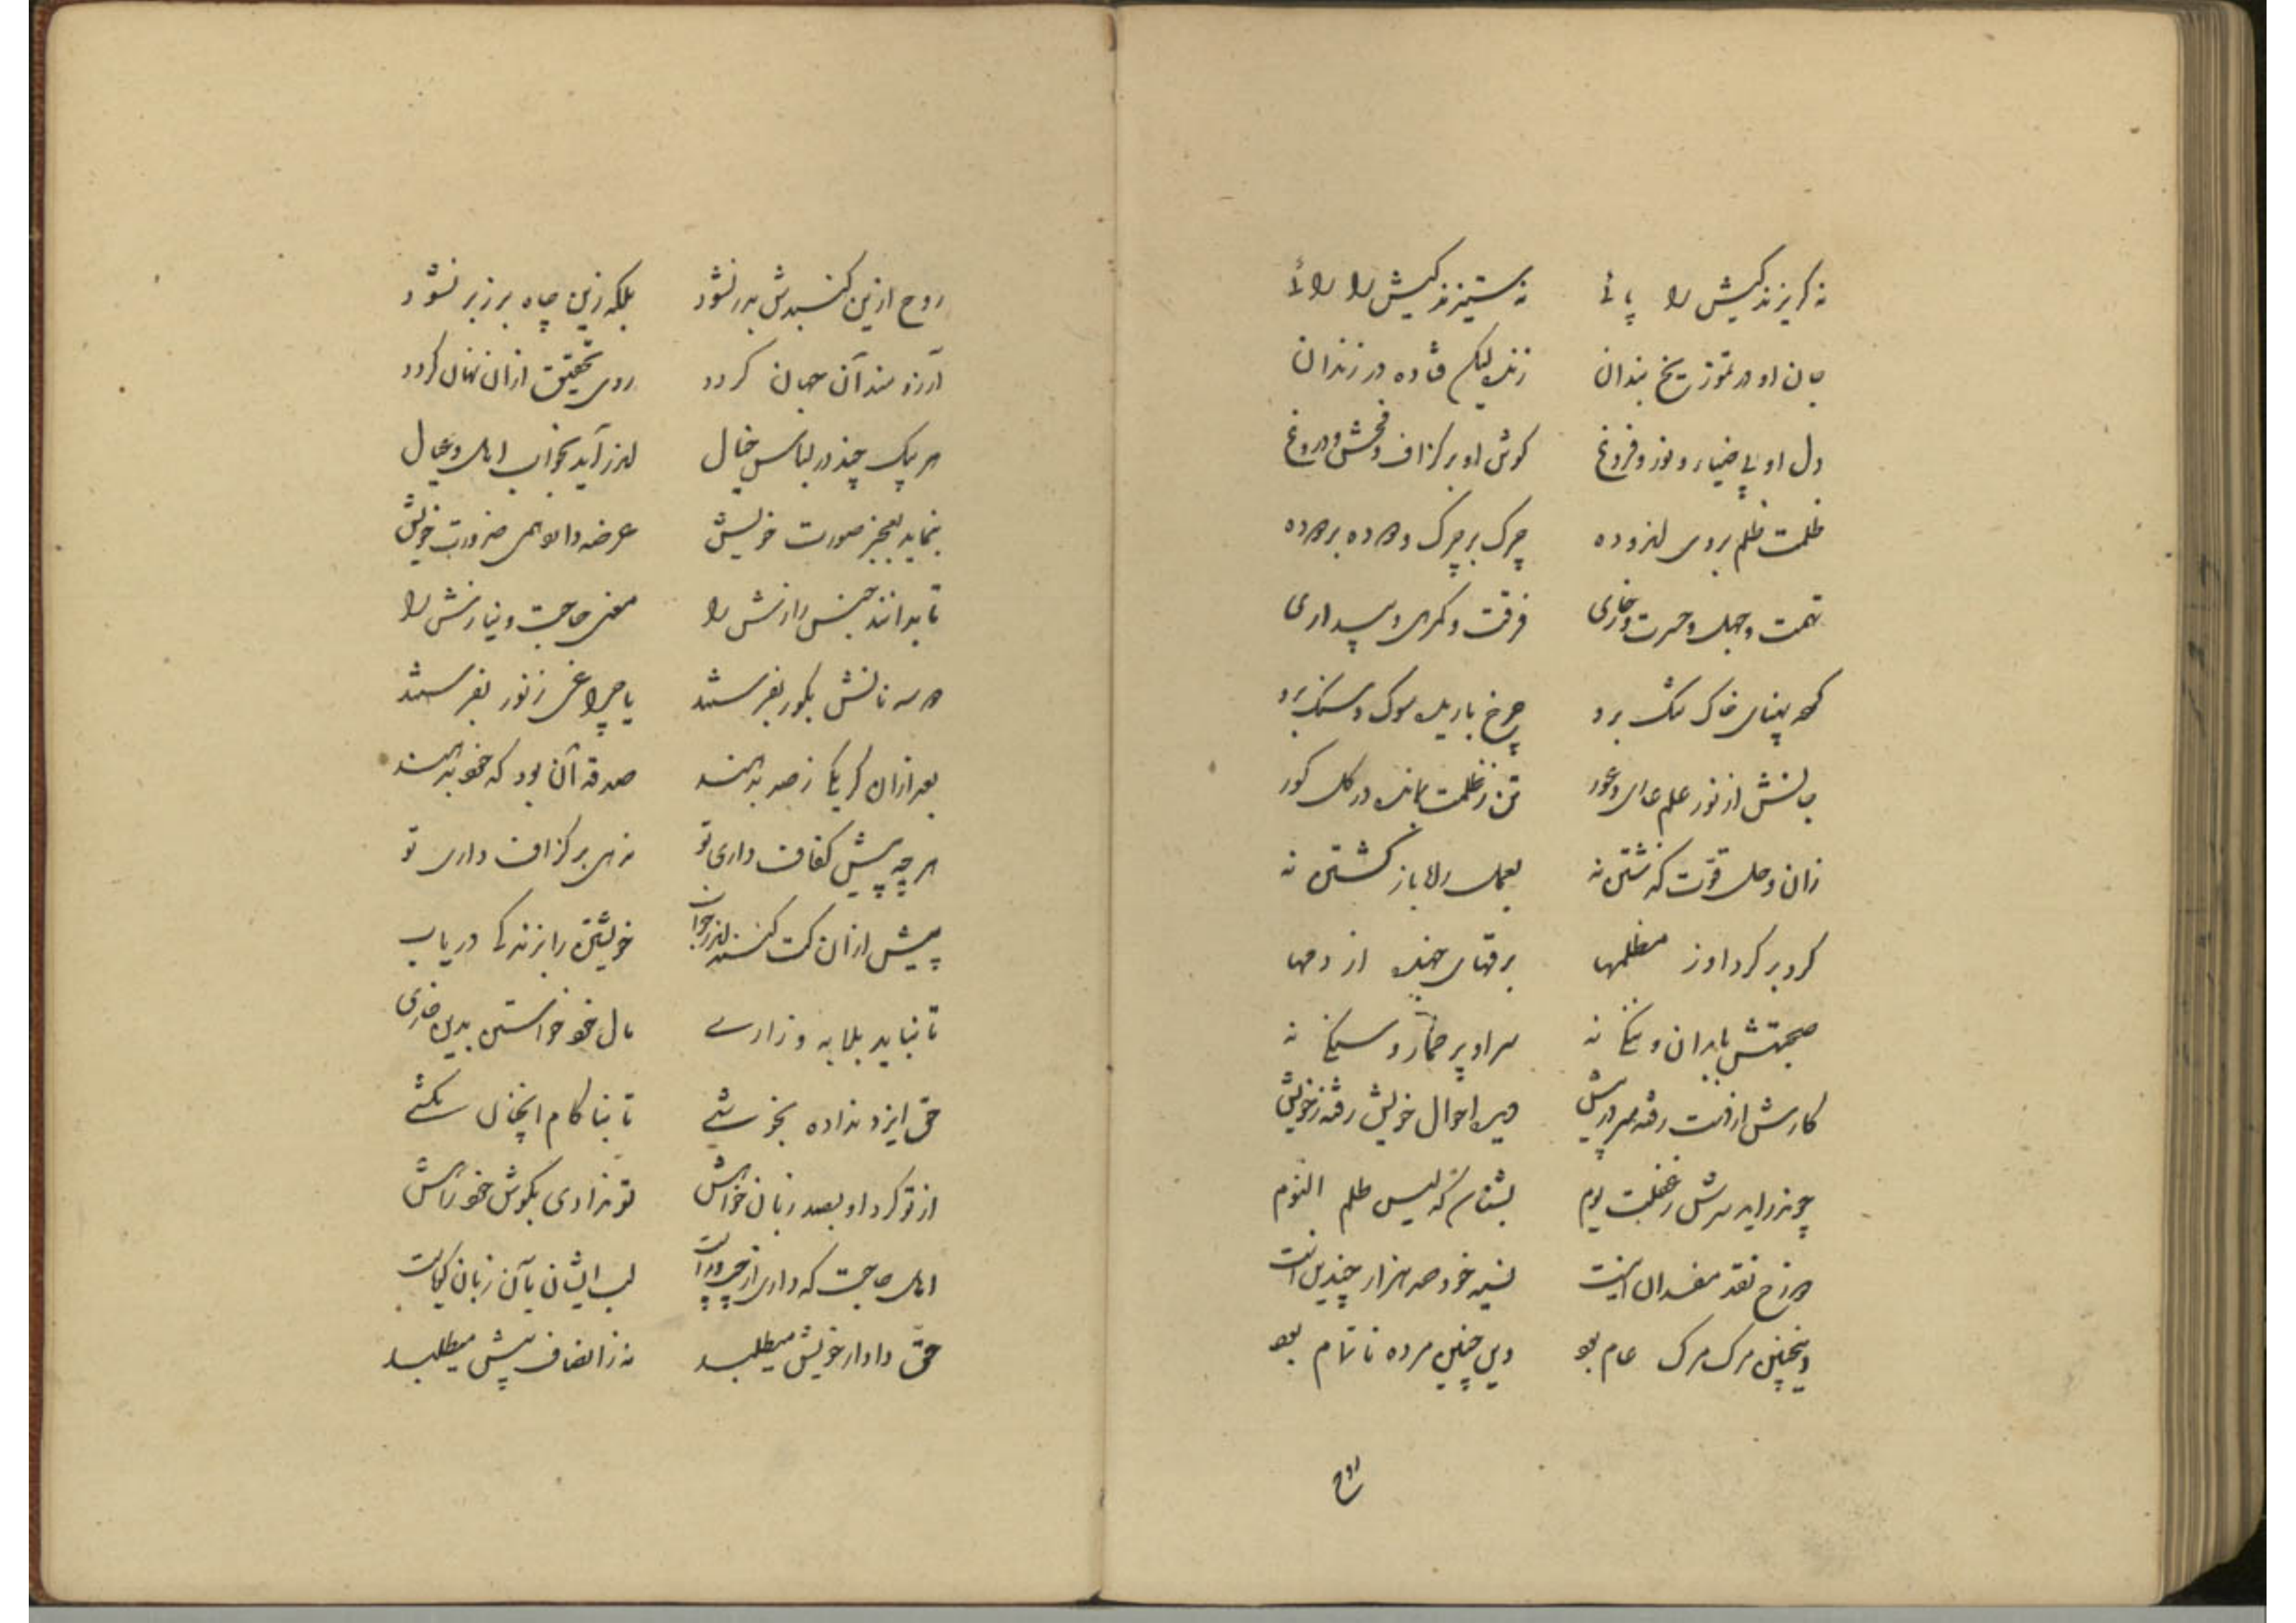 نه گریزندگیش را پائی نه ستیزندگیش را رائی
جان او در تموز یخ بندان زنده لیکن فتاده در زندان
دل او بی ضیاء و نور و فروغ گوش او بر گزاف و فحش و دروغ
ظلمت ظلم بروی اندوده چرک بر چرک و دوده بر دوده
تهمت و جهل و حسرت و خواری فرقت و گمرهی و بیداری
که پهنای خاک تنگ برو چرخ باریده سوک و سنگ برو
جانش از نور علم عاری و عور تن ز ظلمت بمانده در گل گور
زان وحل قوت گذشتن نه بعمل راه باز گشتن نه
گرد بر گرد او ز مظلمها برقهای جهنده از دمها
صحبتش با بدان و نیکی نه سر او پر خمار و سیکی نه
کارش از دست رفته میر درپیش وین احوال خویش رفته ز خویش
چون درآید سرش ز غفلت یوم بشناس که لیس ظلم الیوم
دوزخ نقد مفسدان اینست نسیه خود صد هزار چندین است
و اینچنین مرگ مرگ عام بود وین چنین مرده ناتمام بود
روح
روح ازین گنبدش بدر نشود بلکه زین چاه بر زبر نشود
آرزومند آن جهان گردد روی تحقیق ازان نهان گردد
هر یک چند در لباس خیال اندر آید بخواب اهل و عیال
بنماید بعجز صورت خویش عرضه دارد همی ضرورت خویش
تا بدانند جنس رازش را معنی حاجت و نیازش را
دو سه نانش بگور بفرستند یا چراغی ز نور بفرستند
بعد ازان گر یکی ز صد بدهند صدقه آن بود که خود بدهند
هر چه پیش کفاف داری تو نه همی بر گزاف داری تو
پیش ازان کت کنند اندر خواب خویشتن را بزندگی دریاب
تا نباید بلابه و زاری مال خود خواستن بدین خواری
حق ایزد نداده بخوشی تا بناکام اینچنان بکشی
از تو کرد او بصد زبان خواهش تو ندادی بگوش خود راهش
اهل حاجت که داری از چپ و راست لب ایشان بآن زبان گویاست
حق دادار خویش میطلبند نه ز انصاف بیش میطلبند